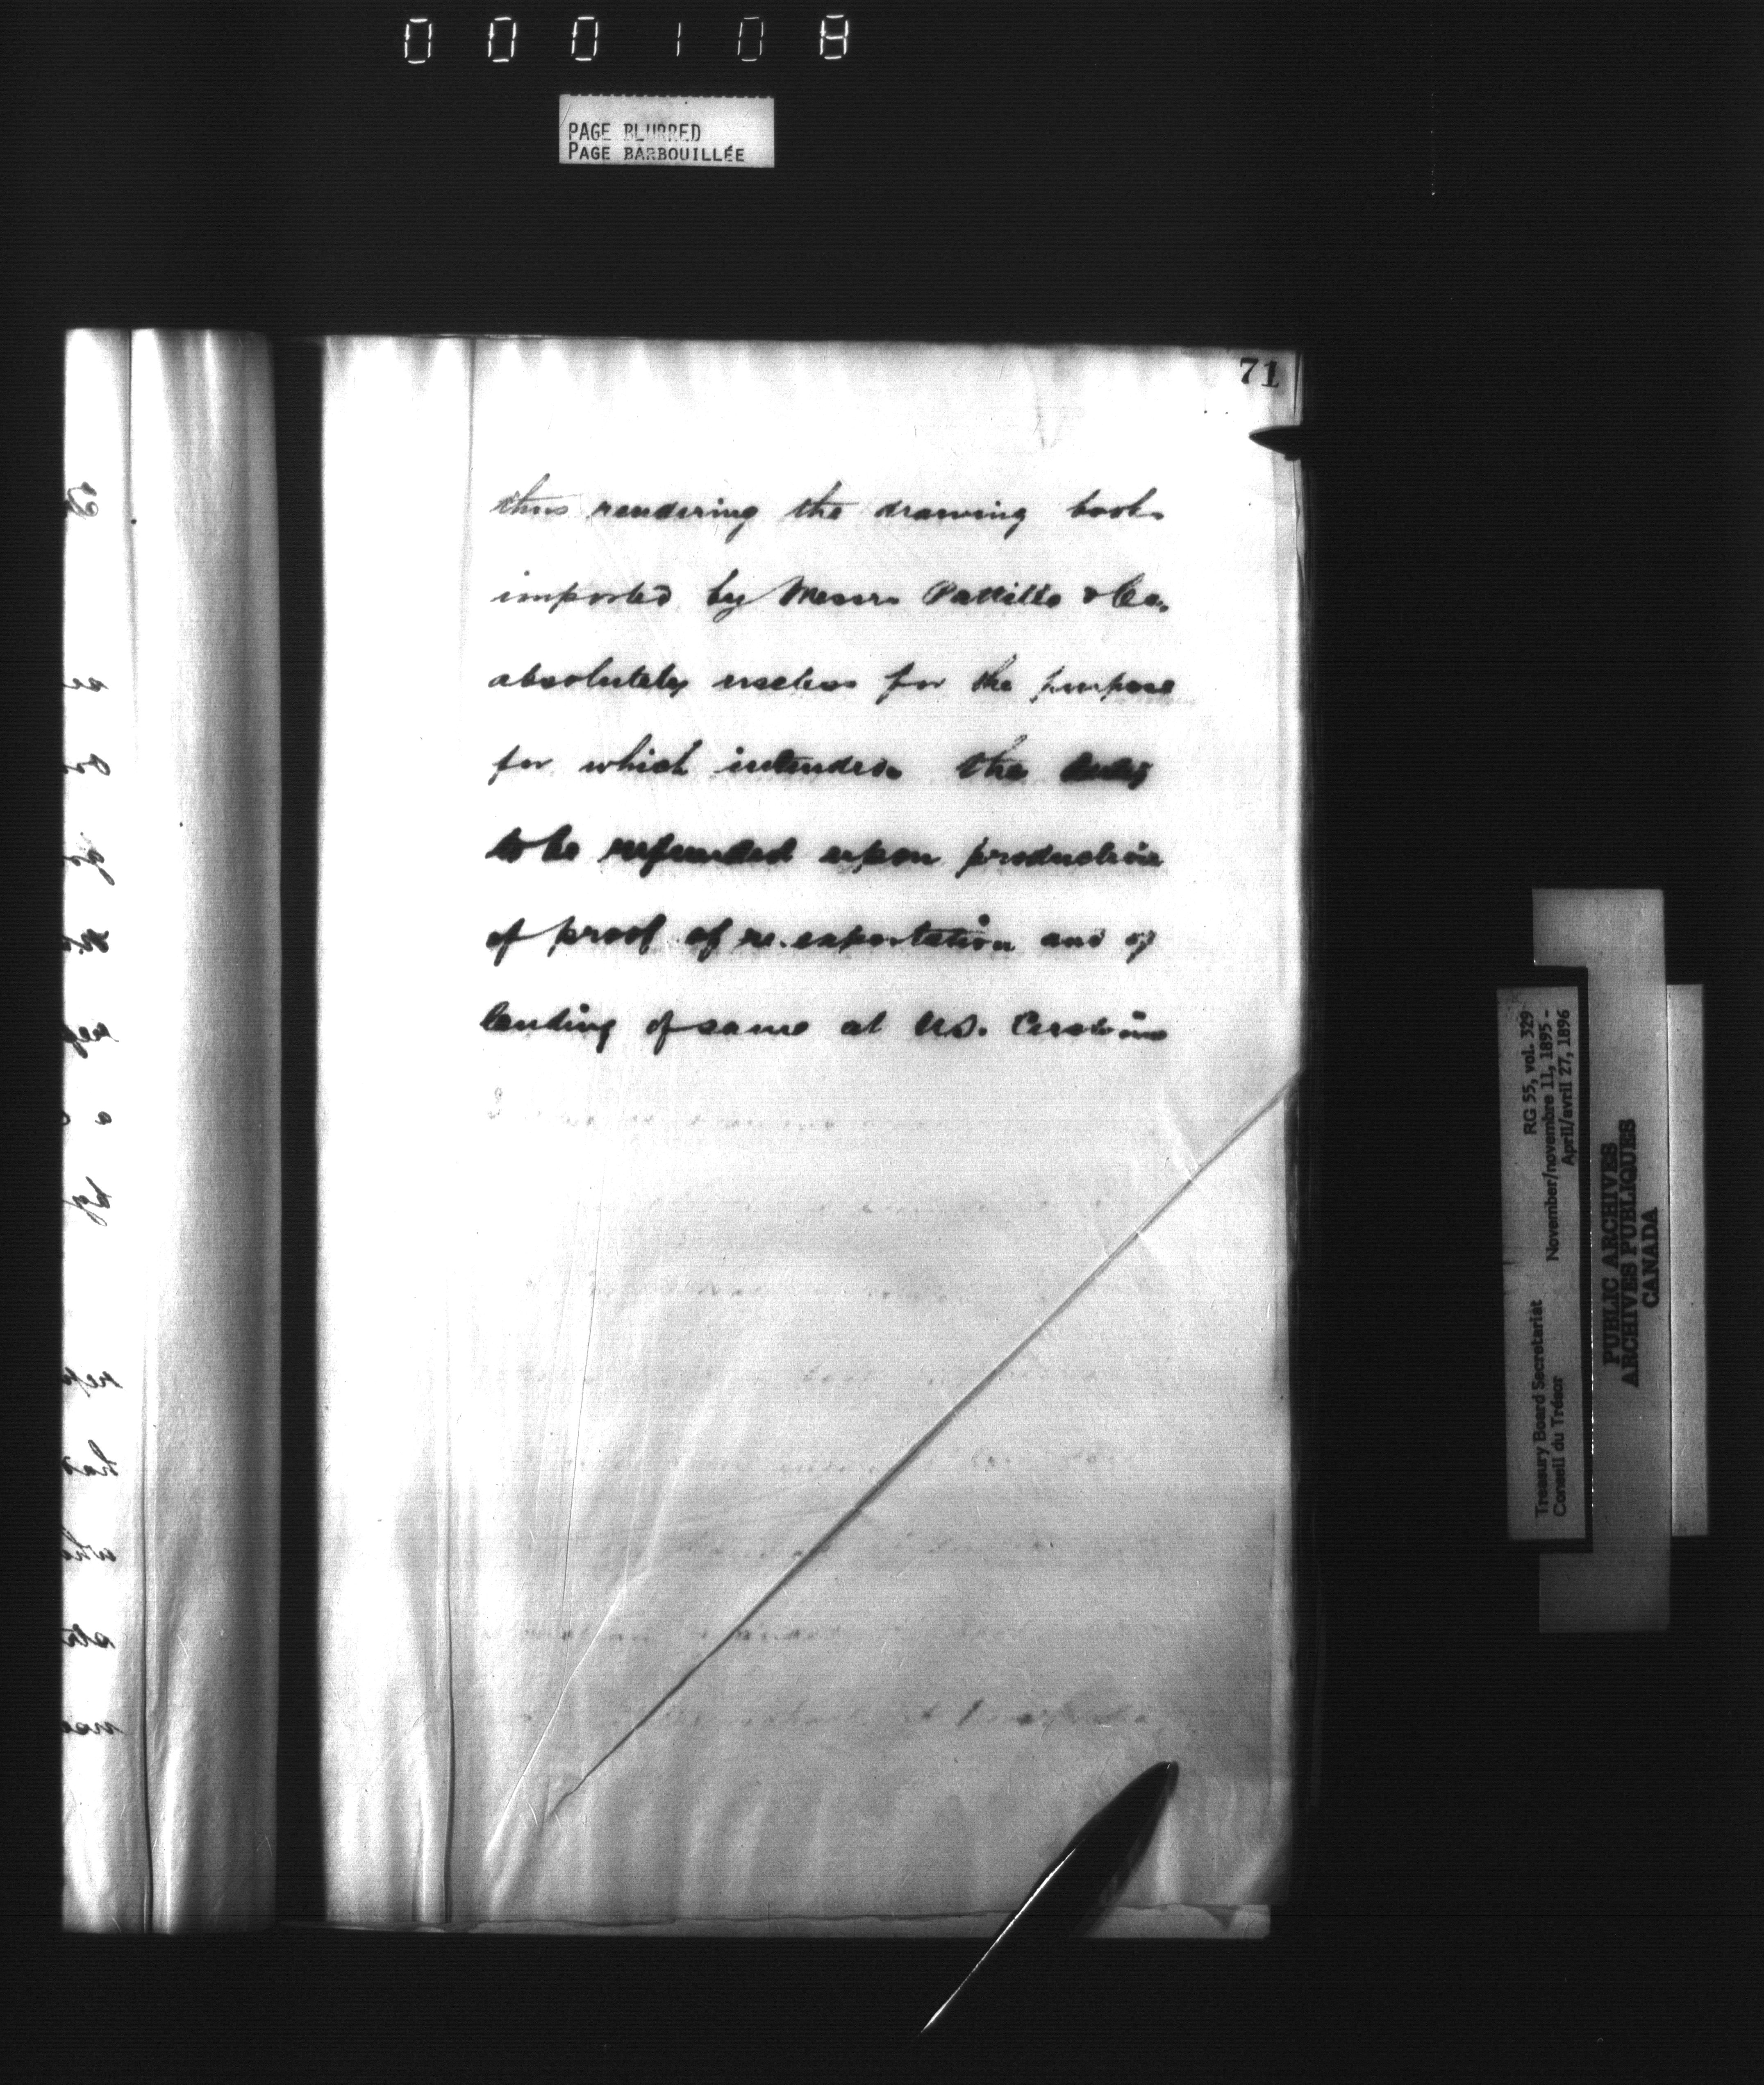 000108
PAGE BLURRED
PAGE BARBOUILLÉE
71
thus rendering the drawing books
imported by Messrs Pattillo & Co.
absolutely useless for the purpose
for which intended. the duty
to be refunded upon production
of proof of re-exportation and of
landing of same at U.S. Customs
Treasury Board Secretariat RG 55, vol. 329
Conseil du Trésor November/novembre 11, 1895 -
April/avril 27, 1896
PUBLIC ARCHIVES
ARCHIVES PUBLIQUES
CANADA